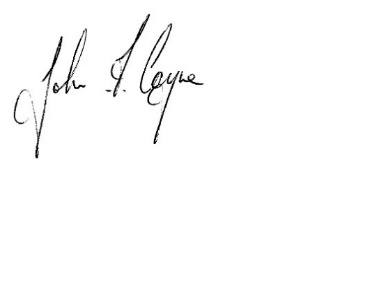 John F. Coyne